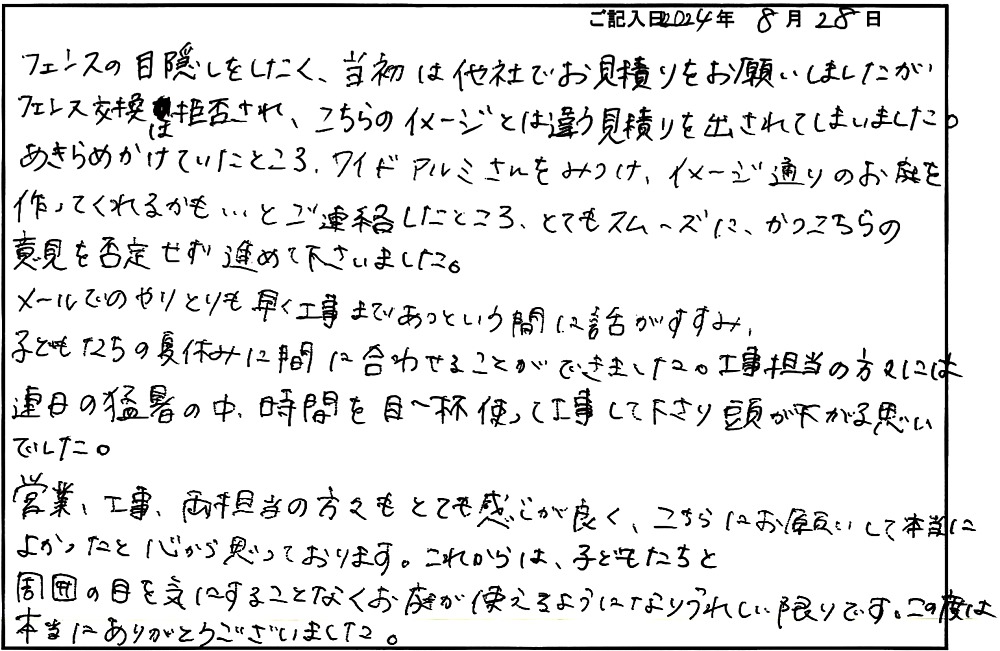 ご記入日2024年 8月28日
フェンスの目隠しをしたく、当初は他社でお見積りをお願いしましたが
フェンス交換は拒否され、こちらのイメージとは違う見積りを出されてしまいました。
あきらめかけていたところ、ワイドアルミさんをみつけ、イメージ通りのお庭を
作ってくれるかも…とご連絡したところ、とてもスムーズに、かつこちらの
意見を否定せず進めて下さいました。
メールでのやりとりも早く工事まであっという間に話がすすみ、
子どもたちの夏休みに間に合わせることができました。工事担当の方々には
連日の猛暑の中、時間を目一杯使って工事して下さり頭が下がる思い
でした。
営業、工事、両担当の方々もとても感じが良く、こちらにお願いして本当に
よかったと心から思っております。これからは、子どもたちと
周囲の目を気にすることなくお庭が使えるようになりうれしい限りです。この度は
本当にありがとうございました。